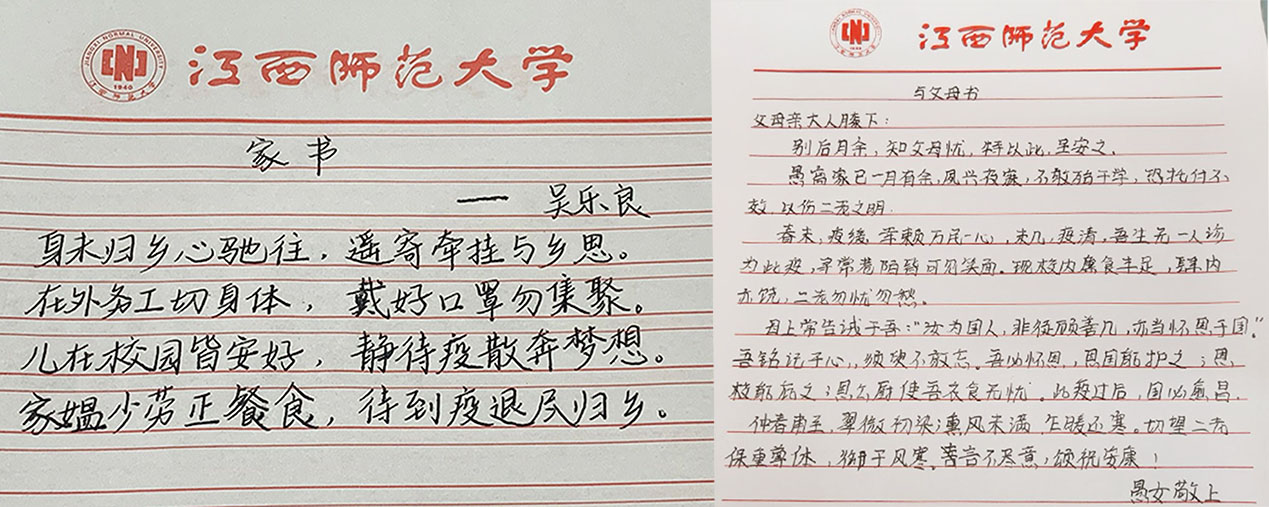 JIANGXI NORMAL UNIVERSITY
1940
江西师范大学
江西师范大学
家书
—— 吴乐良
身未归乡心驰往，遥寄牵挂与乡思。
在外务工切身体，戴好口罩勿集聚。
儿在校园皆安好，静待疫散奔梦想。
家媪少劳正餐食，待到疫退尽归乡。
江西师范大学
与父母书
父母亲大人膝下：
别后月余，知父母忧，特以此，呈安之。
愚离家已一月有余，夙兴夜寐，不敢殆于学，恐托付不
效，以伤二老之明.
春末，疫缓，幸赖万民一心，未几，疫清，吾生无一人
为此疫，寻常巷陌皆可见笑面。现校内廪食丰足，肆内
亦饶，二老勿忧勿愁。
母上常告诫于吾：“汝为国人，非徒顾善几，亦当怀恩于国。”
吾铭记于心，须臾不敢忘。吾必怀恩，恩国能护之；恩
校能庇之；恩公厨使吾衣食无忧。此疫过后，国必愈昌.
仲春甫至，翠微初染，熏风未满，乍暖还寒。切望二老
保重尊体，御于风寒。书言不尽意，颂祝安康！
愚女敬上